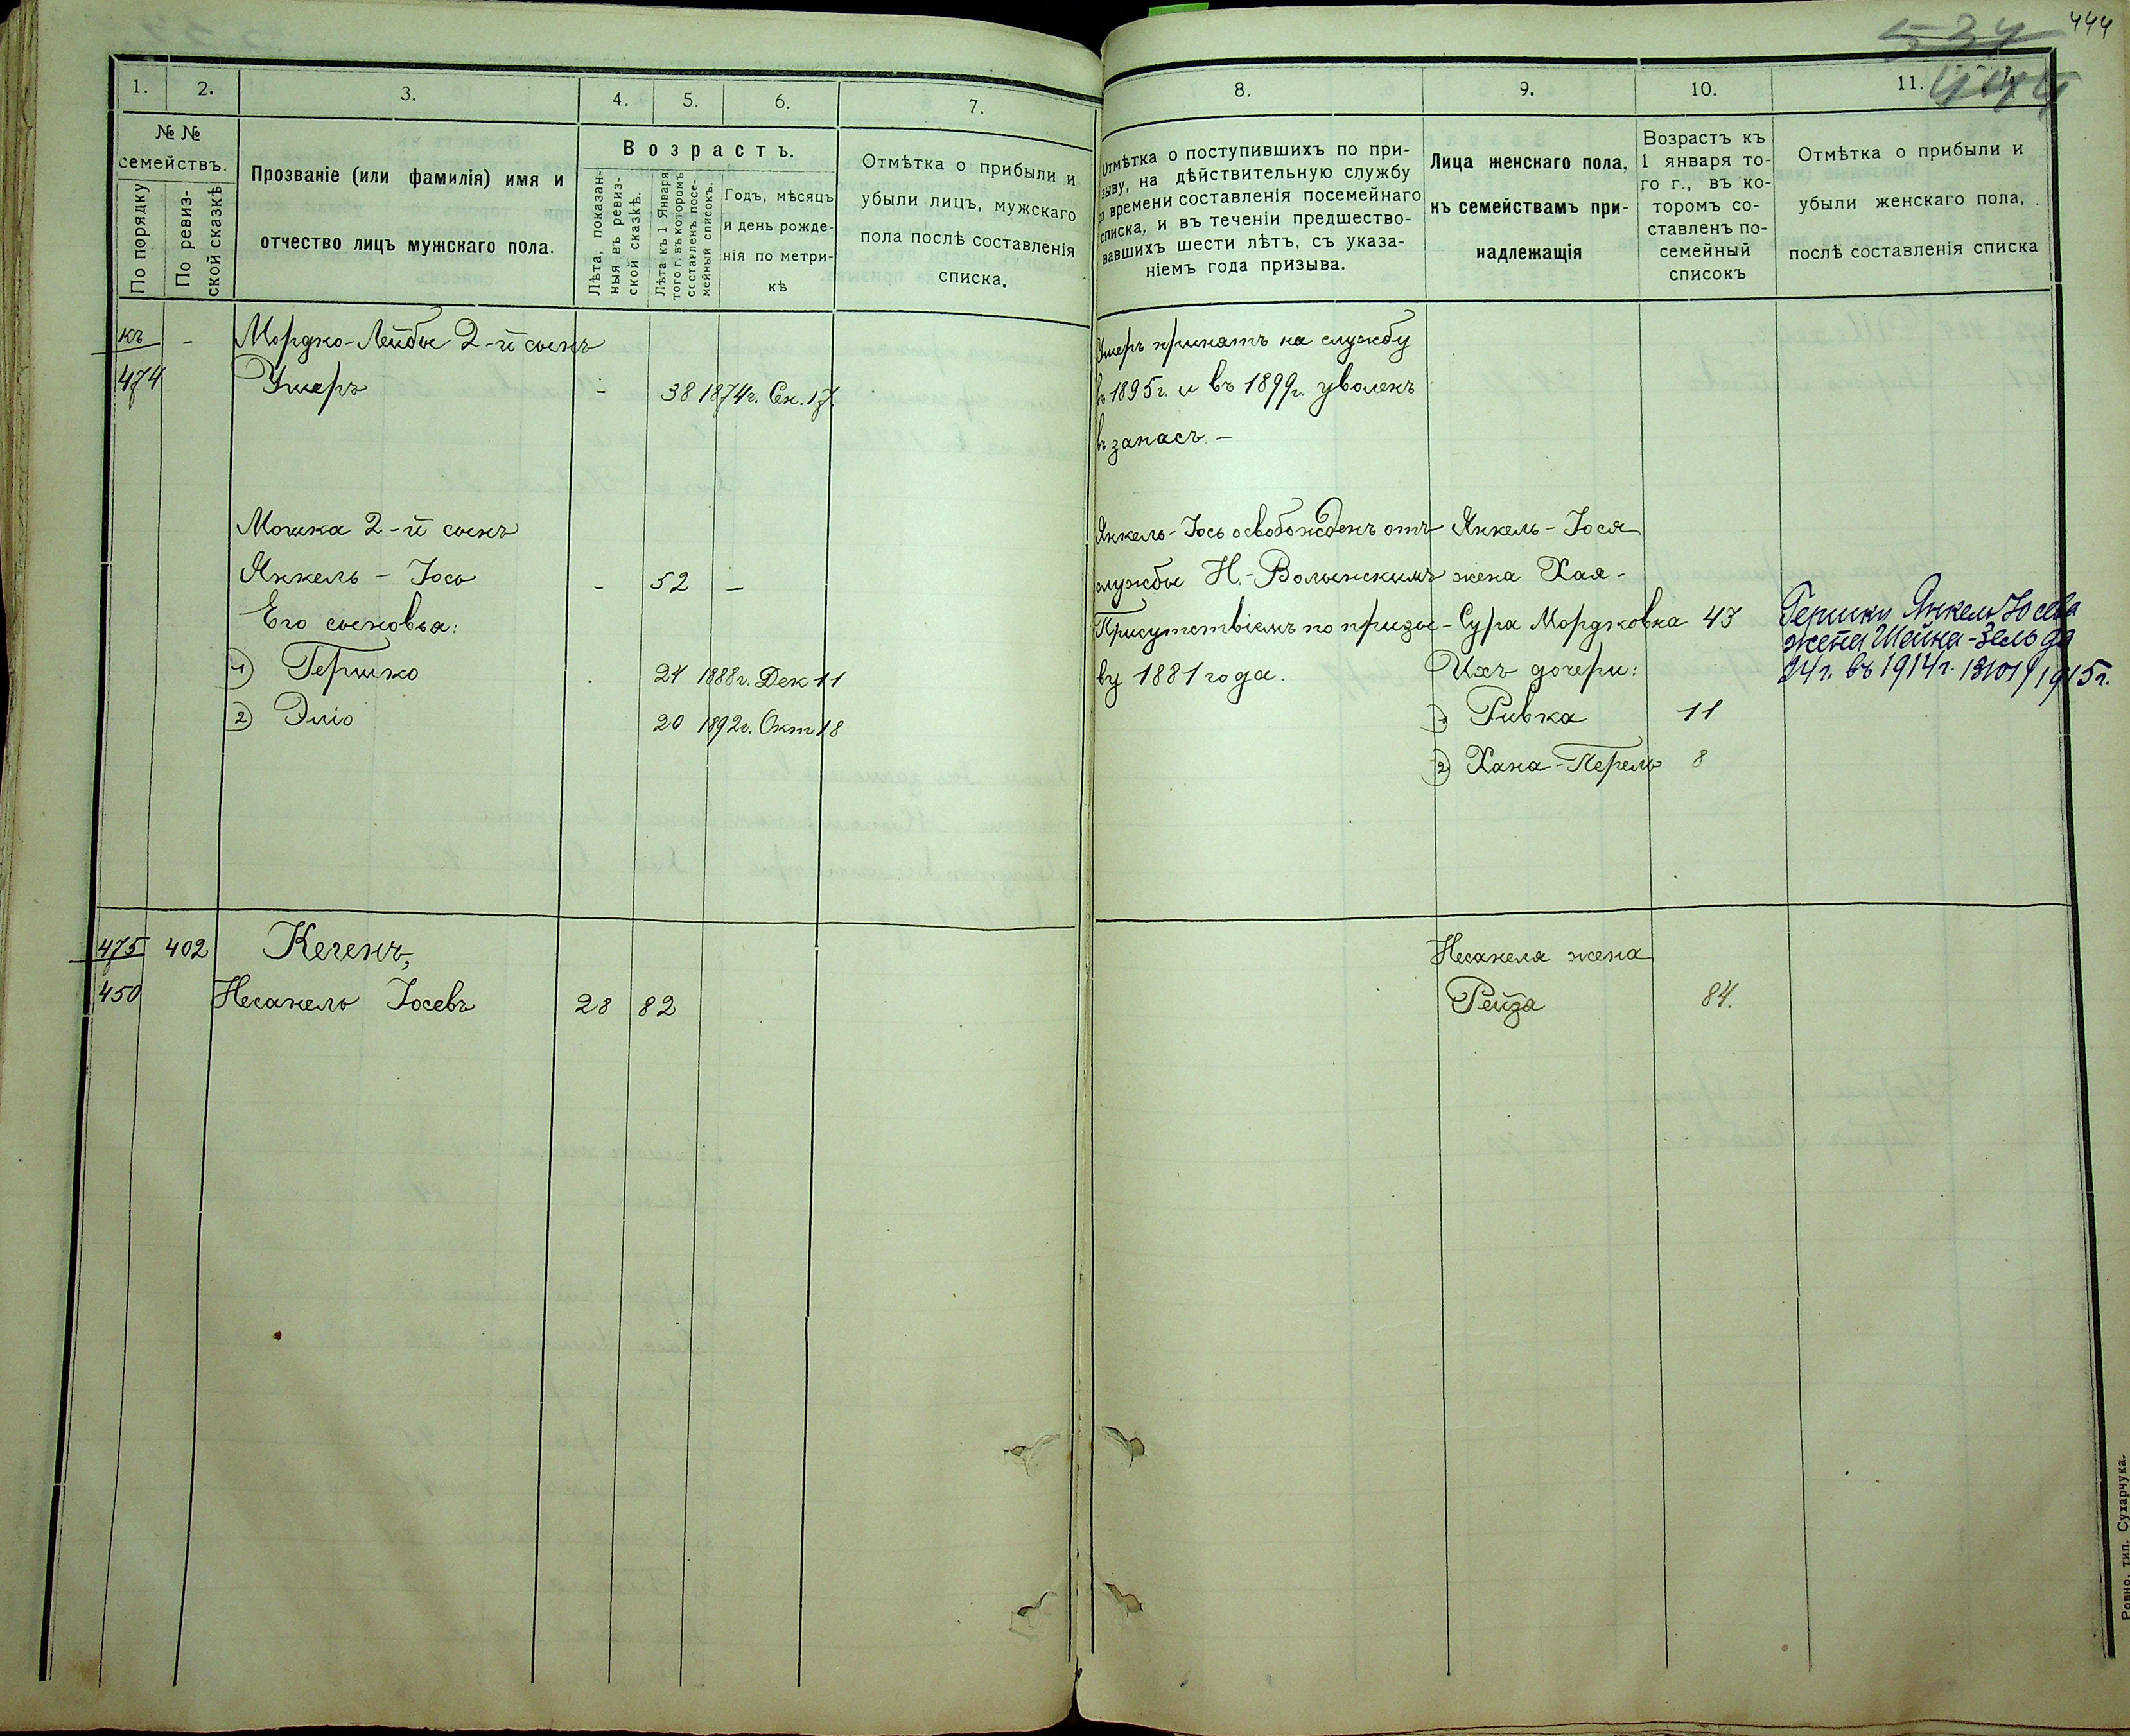 444
534
444
1.
2.
3.
4.
5.
6.
7.
№ №
семействъ.
По порядку
По ревиз-
ской сказкѣ
Прозваніе (или фамилія) имя и
отчество лицъ мужскаго пола.
Возрастъ.
Лѣта, показан-
ныя въ ревиз-
ской сказкѣ.
Лѣта къ 1 Января
того г. въ которомъ
составленъ посе-
мейный списокъ.
Годъ, мѣсяцъ
и день рожде-
нія по метри-
кѣ
Отмѣтка о прибыли и
убыли лицъ, мужскаго
пола послѣ составленія
списка.
къ
474
-
Мордко-Лейбы 2-й сынъ
Умеръ - 38 1874г. Сен. 17.
Мошка 2-й сынъ
Янкель - Іось - 52 -
Его сыновья:
1) Гершко 24 1888г. Дек 11
2) Эліо 20 1892г. Окт 18
475
450
402
Кегенъ,
Несанель Іосевъ 28 82
8.
9.
10.
11.
Отмѣтка о поступившихъ по при-
зыву, на дѣйствительную службу
со времени составленія посемейнаго
списка, и въ теченіи предшество-
вавшихъ шести лѣтъ, съ указа-
ніемъ года призыва.
Лица женскаго пола,
къ семействамъ при-
надлежащія
Возрастъ къ
1 января то-
го г., въ ко-
торомъ со-
ставленъ по-
семейный
списокъ
Отмѣтка о прибыли и
убыли женскаго пола,
послѣ составленія списка
Умеръ принятъ на службу
въ 1895г. и въ 1899г. уволенъ
въ запасъ. -
Янкель-Іось освобожденъ отъ
службы Н.-Волынскимъ
Присутствіемъ по призы-
ву 1881 года.
Янкель - Іося
жена Хая-
Сура Мордковна 43
Ихъ дочери:
1) Ривка 11
2) Хана-Перель 8
Гершки Янкель Іосева
жена Шейна-Зельда
24г. въ 1914г.
1915г.
Несанеля жена
Рейза 84.
Ровно, тип. Сухарчука.